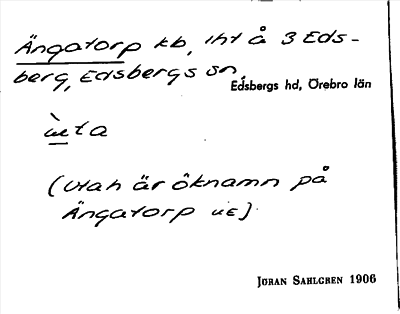 Ängatorp kb, iht å 3 Eds-
berg, Edsbergs sn,
Edsbergs hd, Örebro län
ùta
(Utah är öknamn på
Ängatorp UE)
JÖRAN SAHLGREN 1906